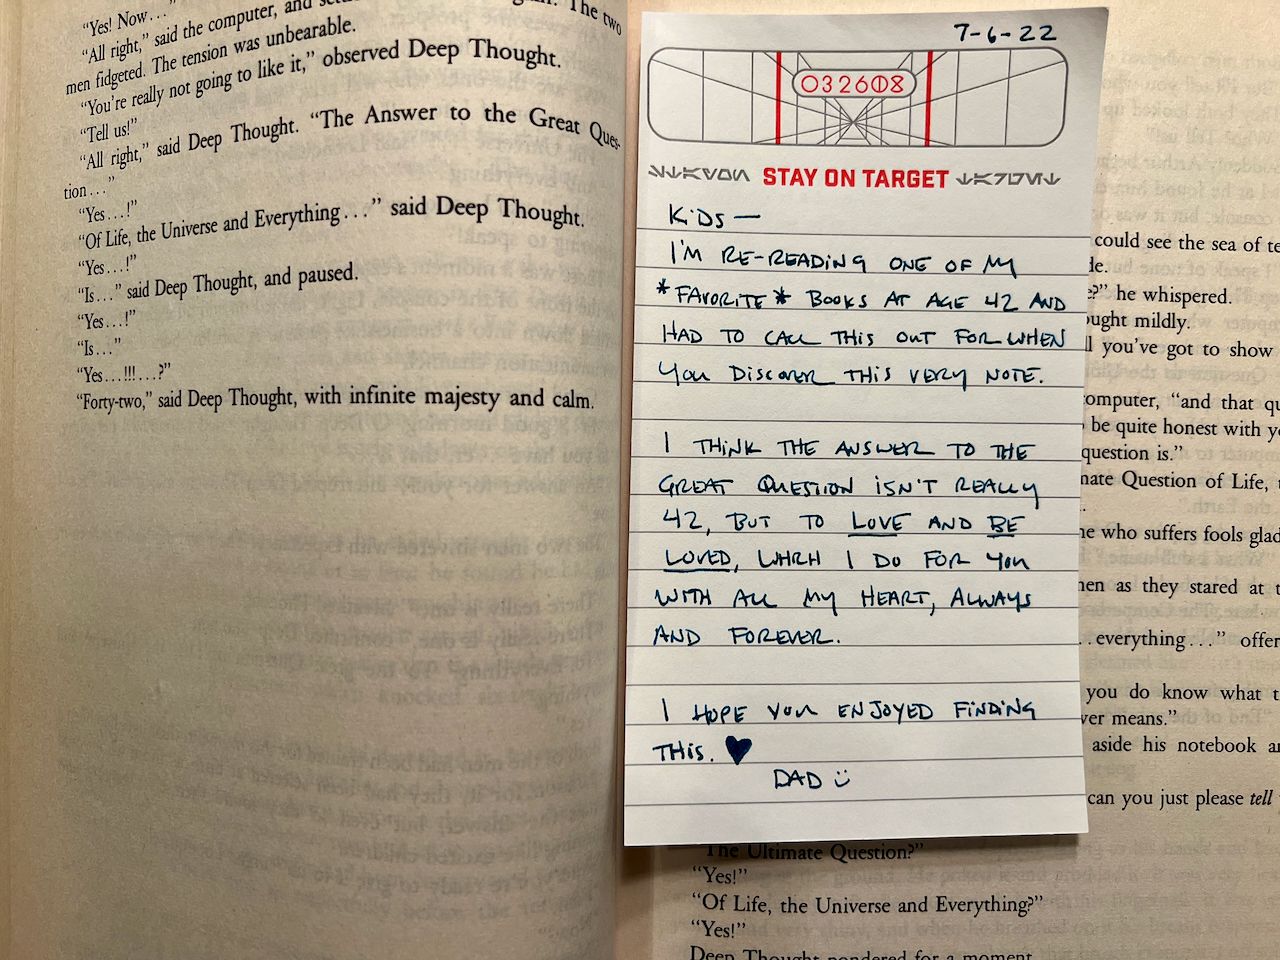 "Yes! Now..."
"All right," said the computer, and
men fidgeted. The tension was unbearable.
"You're really not going to like it," observed Deep Thought.
"Tell us!"
"All right," said Deep Thought. "The Answer to the Great Ques-
tion..."
"Yes...!"
"Of Life, the Universe and Everything..." said Deep Thought.
"Yes...!"
"Is..." said Deep Thought, and paused.
"Yes...!"
"Is..."
"Yes...!!!...?"
"Forty-two," said Deep Thought, with infinite majesty and calm.
The two
7-6-22
032608
STAY ON TARGET
KIDS —
I'M RE-READING ONE OF MY
*FAVORITE* BOOKS AT AGE 42 AND
HAD TO CALL THIS OUT FOR WHEN
YOU DISCOVER THIS VERY NOTE.
I THINK THE ANSWER TO THE
GREAT QUESTION ISN'T REALLY
42, BUT TO LOVE AND BE
LOVED, WHICH I DO FOR YOU
WITH ALL MY HEART, ALWAYS
AND FOREVER.
I HOPE YOU ENJOYED FINDING
THIS. ♥
DAD
could see the sea of
he whispered.
mildly.
you've got to show
"and that
be quite honest with
question is."
Question of Life,
who suffers fools
as they stared at
everything..."
you do know what
means."
aside his notebook
can you just please tell
"The Ultimate Question?"
"Yes!"
"Of Life, the Universe and Everything?"
"Yes!"
Deep Thought pondered for a moment.